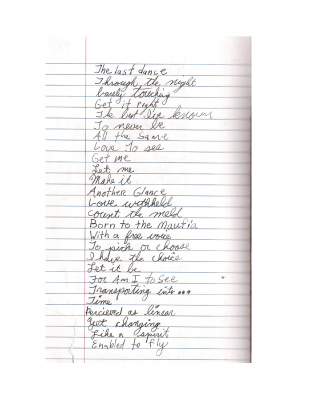 The last dance
Through the night
barely touching
Get it right
The best I've known
To never be
All the same
Love To see
Get me
Let me
Make it
Another Glance
Love withheld
Count the meld
Born to the
With a free voice
To pick or choose
I have the choice
Let it be
For Am I to see
Transporting into...
Time
Percieved as linear
Yet changing
Like a spirit
Enabled to fly